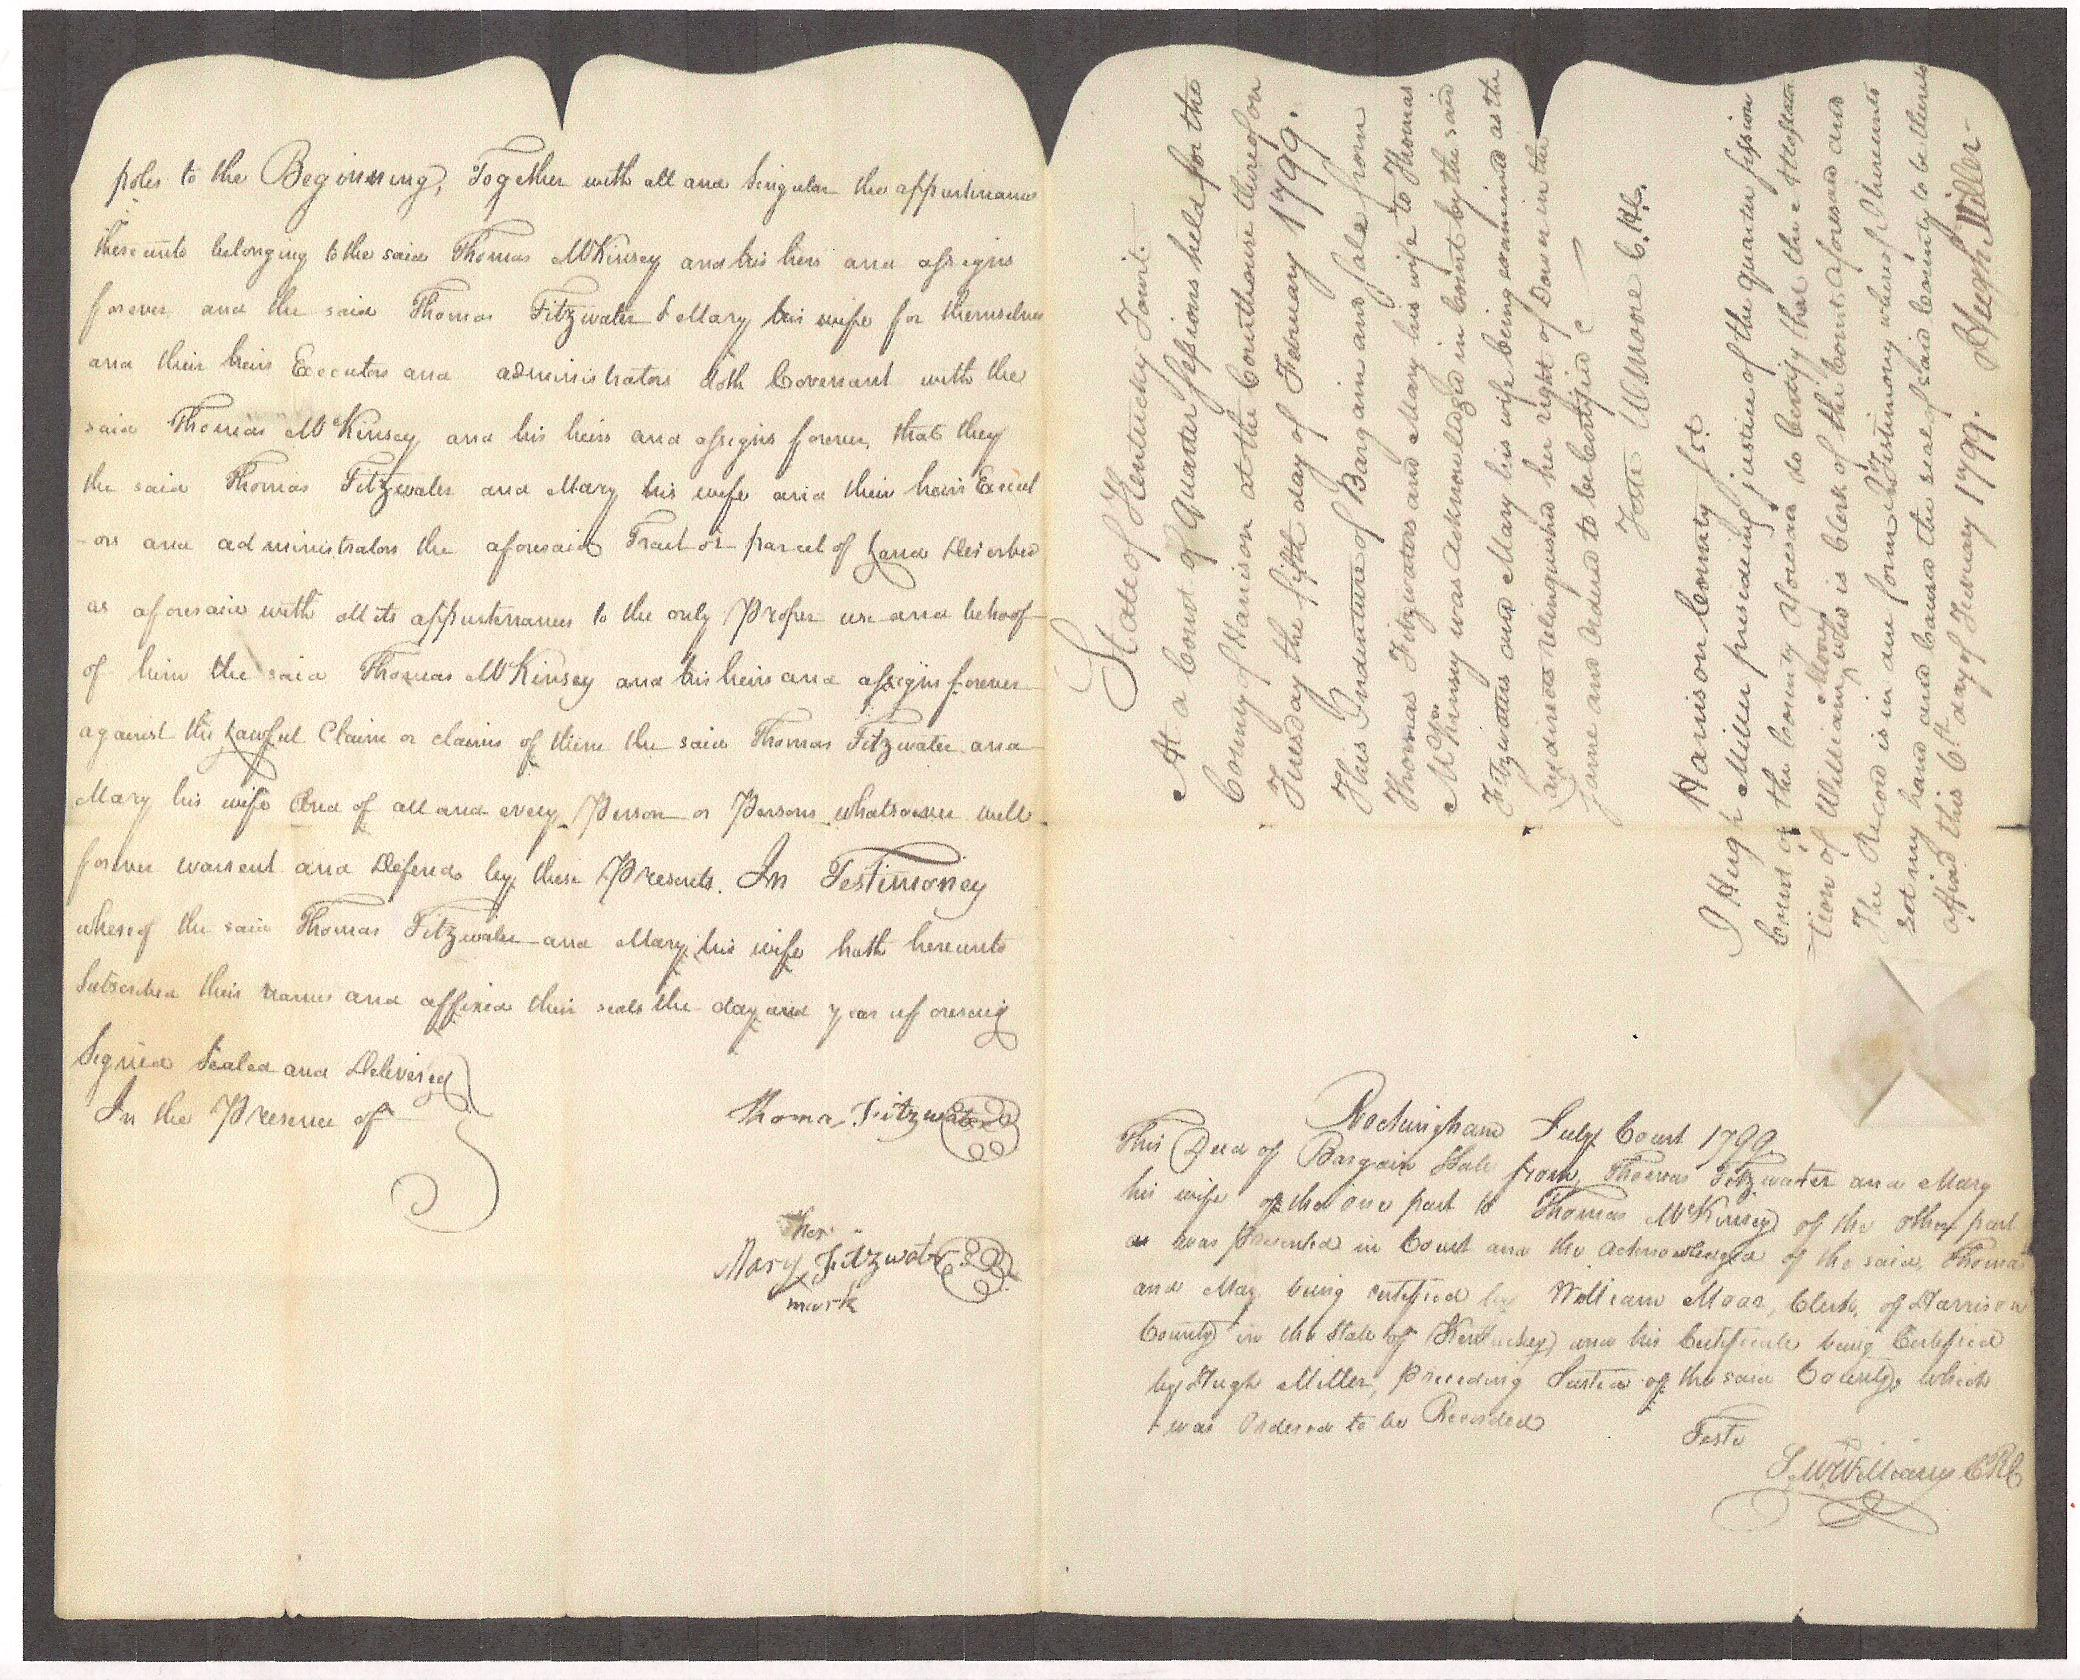 poles to the Beginning, Together with all and Singular the appurtinances
thereunto belonging to the said Thomas McKinsey and his heirs and assigns
forever and the said Thomas Fitzwater & Mary his wife for themselves
and their heirs Executors and administrators doth Covenant with the
said Thomas McKinsey and his heirs and assigns forever, that they
the said Thomas Fitzwater and Mary his wife and their heirs Execut
-ors and administrators the aforesaid Tract or parcel of Land Described
as aforesaid with all its appurtenances to the only Proper use and behoof
of him the said Thomas McKinsey and his heirs and assigns forever
against the Lawful Claim or claims of them the said Thomas Fitzwater and
Mary his wife And of all and every Person or Persons whatsoever will
forever warrent and Defend by these Presents. In Testimoney
whereof the said Thomas Fitzwater and Mary his wife hath hereunto
Subscribed their names and affixed their seals the day and year aforesaid
Signed Sealed and Delivered
In the Presence of
Thomas Fitzwater
her
Mary Fitzwater
mark
State of Kentucky Towit.
At a Court of Quarter Sessions held for the
County of Harrison at the Courthouse thereof on
Tuesday the fifth day of February 1799.
This Indenture of Bargain and Sale from
Thomas Fitzwaters and Mary his wife to Thomas
McKinsey was Acknowledged in Court by the said
Fitzwaters and Mary his wife being examined as the
law directs relinquished her right of Dower in the
same and Ordered to be Certified
Teste W Moore C.H.C.
Harrison County Sct.
I Hugh Miller presiding justice of the quarter session
Court of the County aforesaid do Certify that the Attesta
tion of William Moore who is Clerk of the Court aforesaid and
The Record is in due form In testimony whereof I hereunto
set my hand and caused the seal of said County to be thereto
affixed this 6th day of February 1799. Hugh Miller
Rockingham July Court 1799
This Deed of Bargain & Sale from Thomas Fitzwater and Mary
his wife of the one part to Thomas McKinsey of the other part
was Presented in Court and the acknowledged of the said Thomas
and Mary being certified by William Moor, Clerk of Harrison
County in the State of Kentuckey and his Certificate being Certified
by Hugh Miller, Preceding Justice of the said County, which
was Ordered to be Recorded
Teste
S. McWilliams CRC